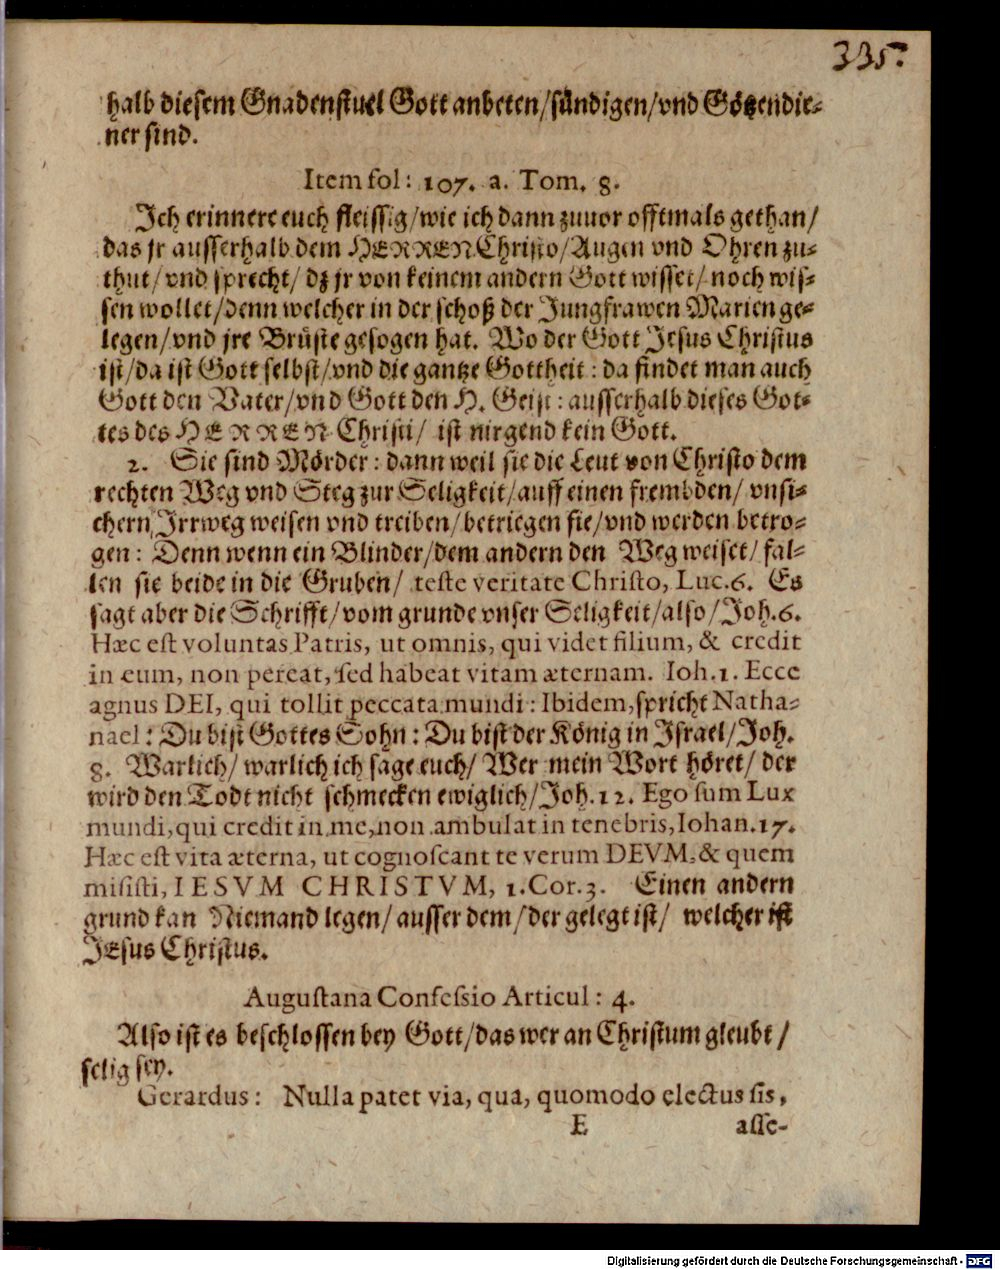 335.
halb diesem Gnadenstuel Gott anbeten/sündigen/vnd Götzendie-
ner sind.
Item fol: 107. a. Tom. 8.
Ich erinnere euch fleissig/wie ich dann zuuor offtmals gethan/
das jr ausserhalb dem HERREN Christo/Augen vnd Ohren zu-
thut/vnd sprecht/dz jr von keinem andern Gott wisset/noch wis-
sen wollet/denn welcher in der schoß der Jungfrawen Marien ge-
legen/vnd jre Brüste gesogen hat. Wo der Gott Jesus Christus
ist/da ist Gott selbst/vnd die gantze Gottheit: da findet man auch
Gott den Vater/vnd Gott den H. Geist: ausserhalb dieses Got-
tes des HERREN Christi/ ist nirgend kein Gott.
2. Sie sind Mörder: dann weil sie die Leut von Christo dem
rechten Weg vnd Steg zur Seligkeit/auff einen frembden/ vnsi-
chern Irrweg weisen vnd treiben/betriegen sie/vnd werden betro-
gen: Denn wenn ein Blinder/dem andern den Weg weiset/ fal-
len sie beide in die Gruben/ teste veritate Christo, Luc.6. Es
sagt aber die Schrifft/vom grunde vnser Seligkeit/also/Joh.6.
Hæc est voluntas Patris, ut omnis, qui videt filium, & credit
in eum, non pereat, sed habeat vitam æternam. Ioh.1. Ecce
agnus DEI, qui tollit peccata mundi: Ibidem, spricht Natha-
nael: Du bist Gottes Sohn: Du bist der König in Israel/Joh.
8. Warlich/ warlich ich sage euch/ Wer mein Wort höret/ der
wird den Todt nicht schmecken ewiglich/Joh.12. Ego sum Lux
mundi, qui credit in me, non ambulat in tenebris, Iohan.17.
Hæc est vita æterna, ut cognoscant te verum DEVM, & quem
misisti, IESVM CHRISTVM, 1.Cor.3. Einen andern
grund kan Niemand legen/ausser dem/der gelegt ist/ welcher ist
JEsus Christus.
Augustana Confessio Articul: 4.
Also ist es beschlossen bey Gott/das wer an Christum gleubt/
selig sey.
Gerardus: Nulla patet via, qua, quomodo electus sis,
E asse-
Digitalisierung gefördert durch die Deutsche Forschungsgemeinschaft - DFG